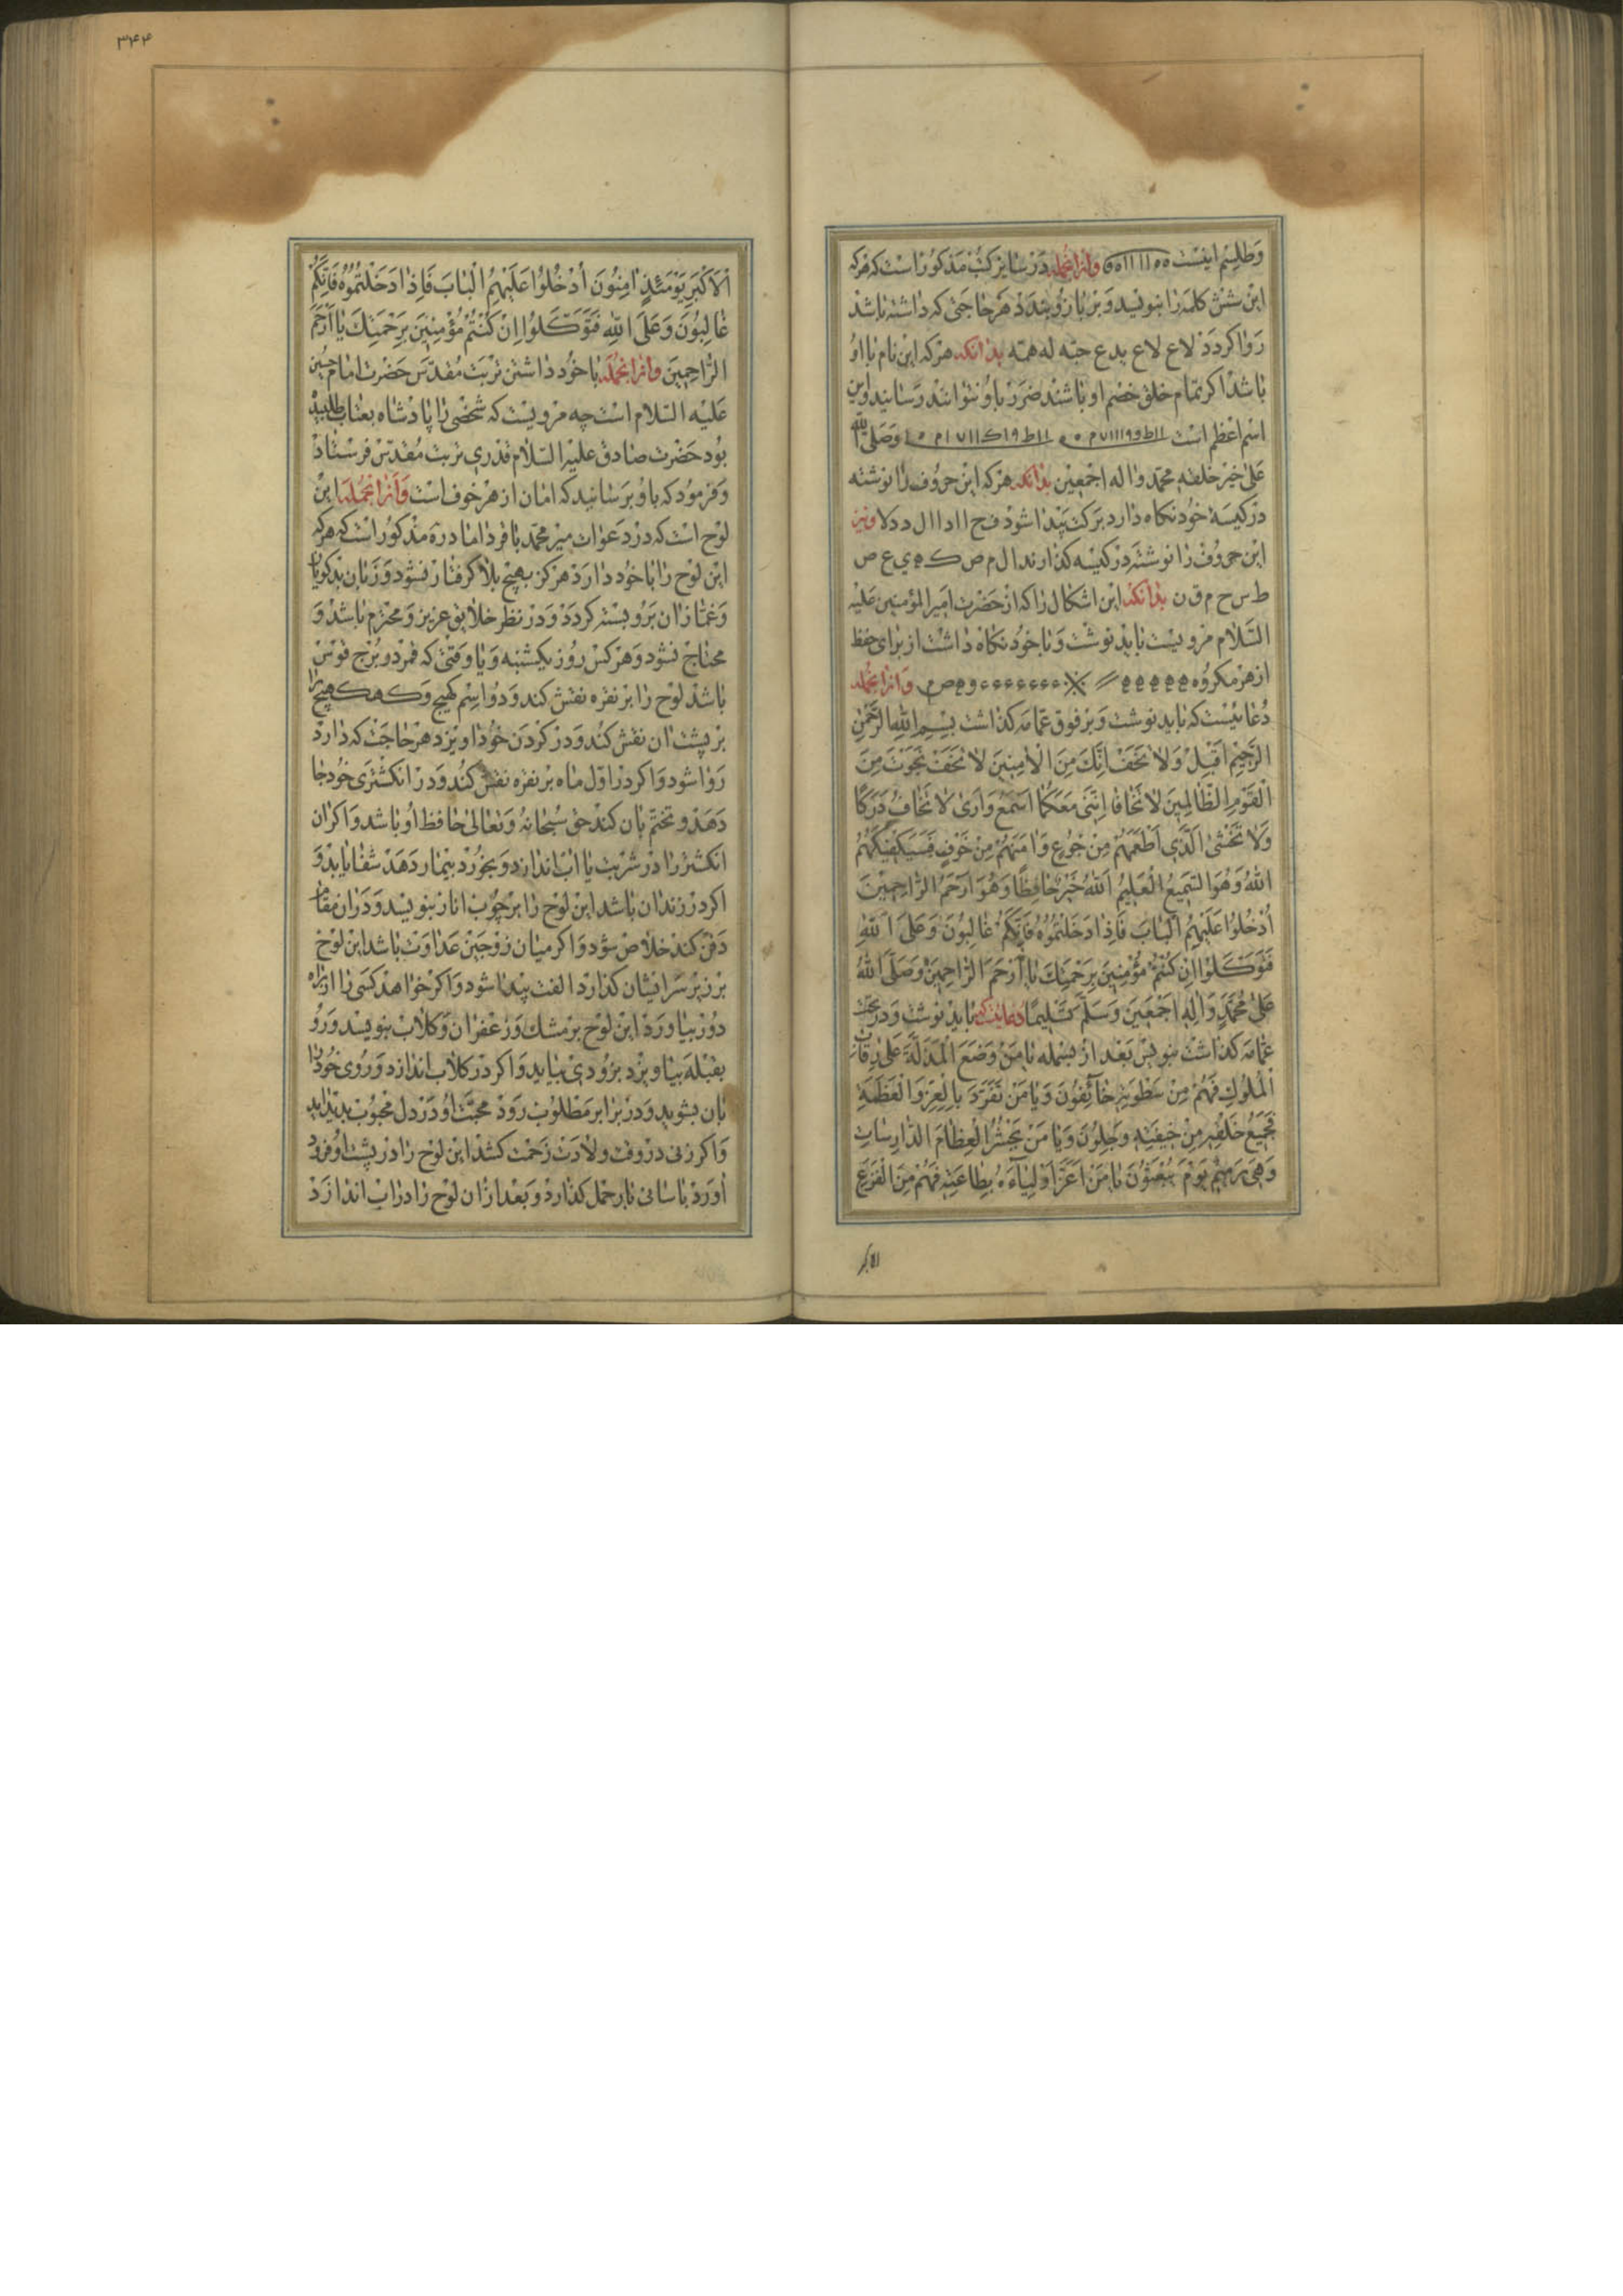 وَطلِسْم اینَسْت ٥٥ ااا ااا٥٥ وانزانجمله دَرسٰایر کتُب مَذکوراسْت که هَرکه
این شش کلمه رٰا بنویسد وَبَر بازُو بندَد هَر حٰاجَتی که دٰاشته بٰاشد
رَوٰا کردَد لاع لاع یدع حبّه له همّه بدٰانکه هَرکه این نام بٰا اوُ
بٰاشد اکر تمٰام خلق خصْم او بٰاشند ضَرَر باوُ نتوٰانند رَسٰانید واین
اسْم اعظم اسْت وَصَلی الله
عَلیٰ خَیْر خَلقه محمّد واله اجمَعین بدٰانکه هَرکه این حروُف رٰا نوشته
دَرکیسَهٔ خُود نکاه دٰارد بَرکت پَیدٰا شوَد ف ح ااد اا ل د د لا ونیز
این حروُف رٰا نوشته دَرکیسه کذٰارند ا ل م ص ک ه ي ع ص
ط س ح م ق ن بدٰانکه این اشکال رٰا که از حَضرت امیرالمؤمنین عَلیه
السَّلام مرویست بٰاید نوشت وَبٰا خوُد نکاه دٰاشت از برٰای حفظ
از هَر مکروُه وانزانجمله
دُعٰائیسْت که بٰاید نوشت وَبَر فوق عمّامَه کذٰاشت بِسْمِ اللهِ الرَّحْمٰنِ
الرَّحیمِ اَقبِلْ وَلا تَخَفْ اِنَّکَ مِنَ الاٰمِنینَ لا تَخَفْ نَجَوْتَ مِنَ
الْقَوْمِ الظّٰالِمینَ لا تَخٰافٰا اِنَّنی مَعَکُمٰا اَسْمَعُ وَاَریٰ لا تَخٰافُ دَرَکًا
وَلا تَخْشیٰ اَلَّذی اَطْعَمَهُمْ مِنْ جُوعٍ وَاٰمَنَهُمْ مِنْ خَوْفٍ فَسَیَکْفیکَهُمُ
اللهُ وَهُوَ السَّمیعُ الْعَلیمُ اَللهُ خَیْرٌ حٰافِظًا وَهُوَ اَرْحَمُ الرّٰاحِمینَ
اُدْخُلُوا عَلَیْهِمُ الْبٰابَ فَاِذٰا دَخَلْتُمُوهُ فَاِنَّکُمْ غٰالِبُونَ وَعَلَی اللهِ
فَتَوَکَّلُوا اِنْ کُنْتُمْ مُؤْمِنینَ بِرَحْمَتِکَ یٰا اَرْحَمَ الرّٰاحِمینَ وَصَلَّی اللهُ
عَلیٰ مُحَمَّدٍ وَاٰلِهِ اَجْمَعینَ وَسَلَّمَ تَسْلیمًا دعٰائیسْت که بٰاید نوشت وَدَر تحْت
عمّٰامَه کذٰاشت بنویس بَعْد از بسمله یٰا مَنْ وَضَعَ الْمَذَلَّةَ عَلیٰ رِقٰابِ
الْمُلُوكِ فَهُمْ مِنْ سَطْوَتِهِ خٰائِفُونَ وَیٰا مَنْ تَفَرَّدَ بِالْعِزِّ وَالْعَظَمَةِ
فَجَمیعُ خَلْقِهِ مِنْ خیفَتِهِ وَجِلُونَ وَیٰا مَنْ یَحْشُرُ الْعِظٰامَ الدّٰارِسٰاتِ
وَهِیَ رَمیمٌ یَوْمَ یُبْعَثُونَ یٰا مَنْ اَعَزَّ اَوْلِیٰاءَهُ بِطٰاعَتِهِ فَهُمْ مِنَ الْفَزَعِ
الاکبر
٣٤٤
الْاَکْبَرِ یَوْمَئِذٍ اٰمِنُونَ اُدْخُلُوا عَلَیْهِمُ الْبٰابَ فَاِذٰا دَخَلْتُمُوهُ فَاِنَّکُمْ
غٰالِبُونَ وَعَلَی اللهِ فَتَوَکَّلُوا اِنْ کُنْتُمْ مُؤْمِنینَ بِرَحْمَتِكَ یٰا اَرْحَمَ
الرّٰاحِمینَ وانزانجمله بٰاخوُد دٰاشتن تربَت مُقدّس حَضرت امٰام حسین
عَلیه السّلام اسْت چه مرویست که شخصی رٰا پٰادشٰاه بعتٰاب طلبیده
بوُد حَضْرت صٰادق عَلیْه السّلام قدَری تربت مُقدّس فرسْتٰاد
وَفرموُد که باوُ برسٰانید که امٰان از هَر خوف است وَانزانجمله این
لوْح اسْت که دَر دَعوٰات میر محمّد بٰاقر دٰامٰاد ره مَذکوُر اسْت که هَرکه
این لوْح رٰا بٰا خوُد دٰارَد هَرکز بهیچ بلا کرفتٰار نشوَد وَزَبٰان بَدکویٰان
وَغمّٰازٰان بَرو بسْته کردَد وَدَر نظر خلایق عزیز وَمحترم بٰاشد وَ
محتٰاج نشوَد وَهَرکس روُز یکشنبه وَیٰا وَقتی که قمر دَر بُرج قوس
بٰاشد لوْح رٰا بَر نقره نقش کند وَدوُ اسْم کهیج وَکهکهیج رٰا
بَر پشت ان نقش کند وَدَر کردَن خوُد اویزد هَر حٰاجَت که دٰارد
رَوٰا شود وَاکر دَر اوّل مٰاه بَر نقره نقش کند وَدَر انکشتری خوُد جٰا
دَهَد وَتختّم بٰان کند حَق سُبحٰانهُ وَتعٰالی حٰافظ اوُ بٰاشد وَاکر ان
انکشتر رٰا دَر شرْبت یٰا اب اندٰازد وَبخورْد بیمٰار دَهَد شفٰا یٰابد وَ
اکر دَر زندٰان بٰاشد این لوْح رٰا بر چوُب انٰار بنویسد وَدَر ان مقٰام
دَفن کند خلاص شوَد وَاکر میٰان زوْجَین عَدٰاوَت بٰاشد این لوْح
بَر زیر سَر ایشان کذٰارد الفت پیدٰا شود وَاکر خوٰاهد کسی رٰا از رٰاه
دوُر بیٰاورَد این لوْح بر مشك وَزعْفرٰان وَکلاب بنویسد وَرُو
بقبْله بیٰاویزد بزوُدی بیٰاید وَاکر دَر کلاب اندٰازد وَروُی خوُد رٰا
بٰان بشوید وَدَر برٰابر مَطلوُب رَوَد محبّت اوُ دَر دل محبوُب پدید اید
وَاکر زنی دَر وَقت ولادَت زَحمت کشد این لوْح رٰا دَر پشت او فروُد
اورَد بٰاسٰانی بٰار حمل کذٰارد وَبَعْد ازٰان لوْح رٰا دَراب اندٰازَد